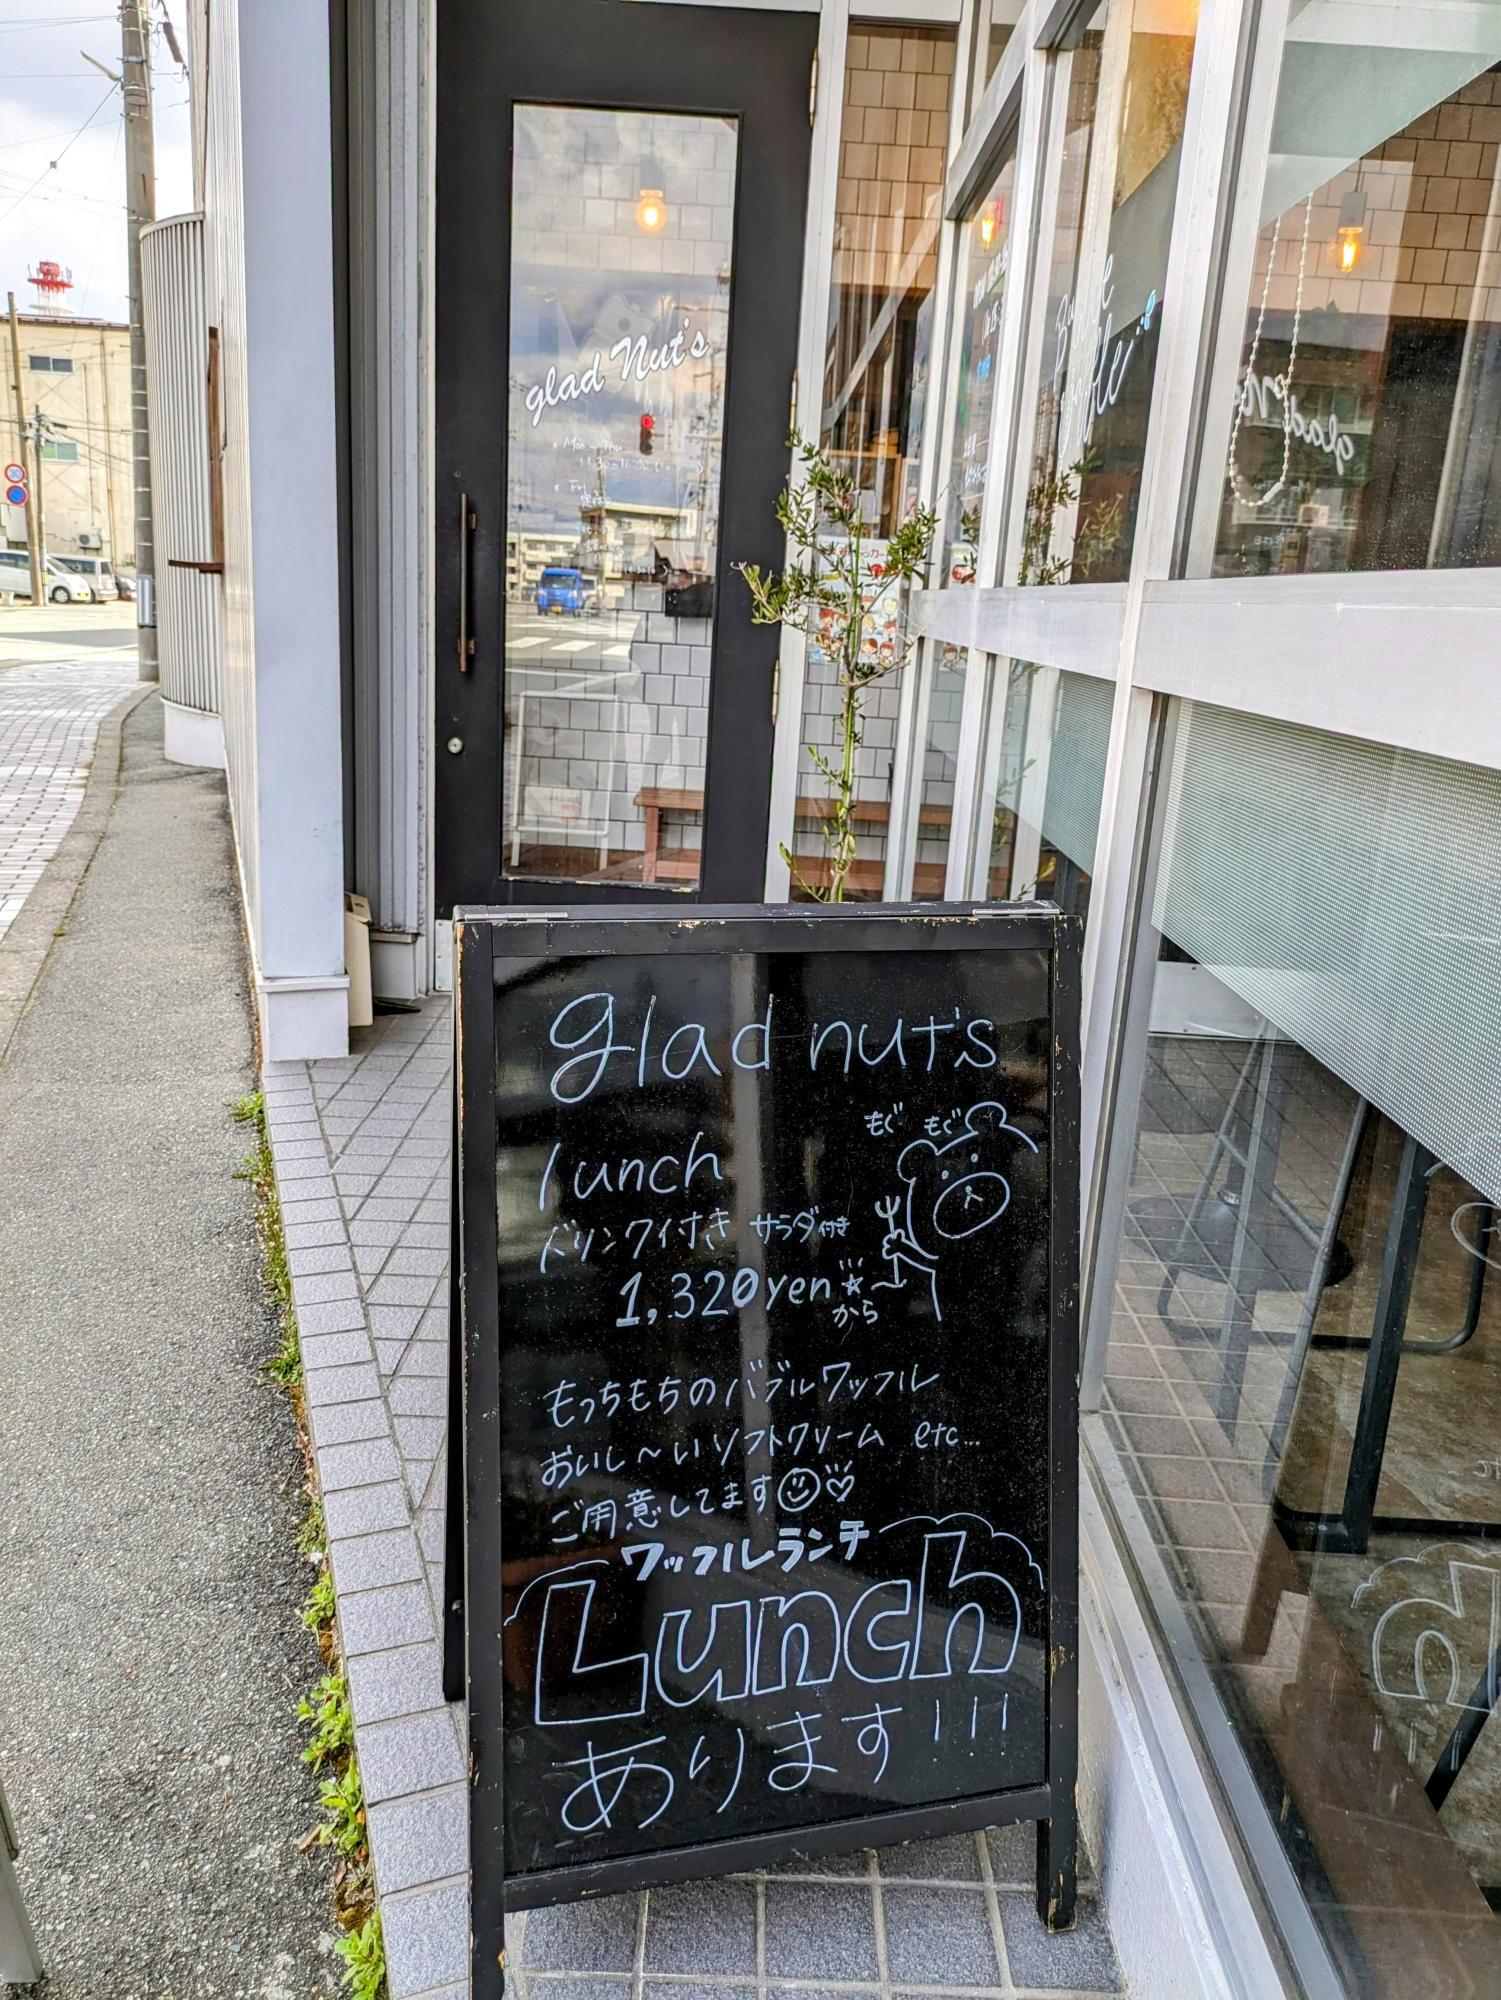 glad Nut's
Mon - Thu
Fri
glad nut's
もぐ もぐ
lunch
ドリンク付き サラダ付き
1,320yen
から
もっちもちのバブルワッフル
おいし〜いソフトクリーム etc...
ご用意してます
ワッフルランチ
Lunch
あります!!!
30